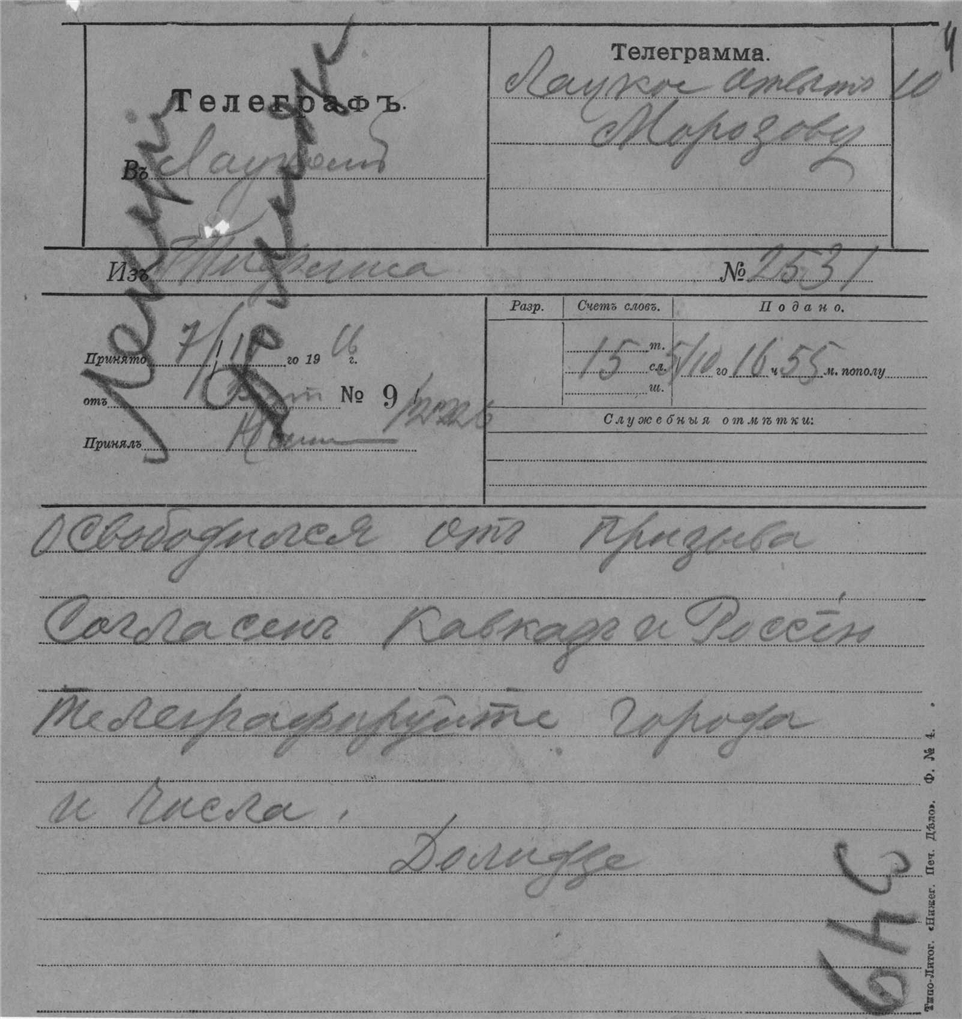 Телеграфъ.
Въ
Телеграмма.
Морозову
10
4
Изъ Тифлиса
№ 2531
Принято 7/ го 1916 г.
отъ № 9
Принялъ
Разр. Счетъ словъ. Подано.
15 т. сл. ш. 5/10 го 16 ч 55 м. пополу
Служебныя отмѣтки:
Освободился отъ призыва
Согласенъ Кавказъ и Россію
телеграфируйте города
и числа.
Долидзе
Типо-Литог. «Нижег. Печ. Дѣло». Ф. № 4.